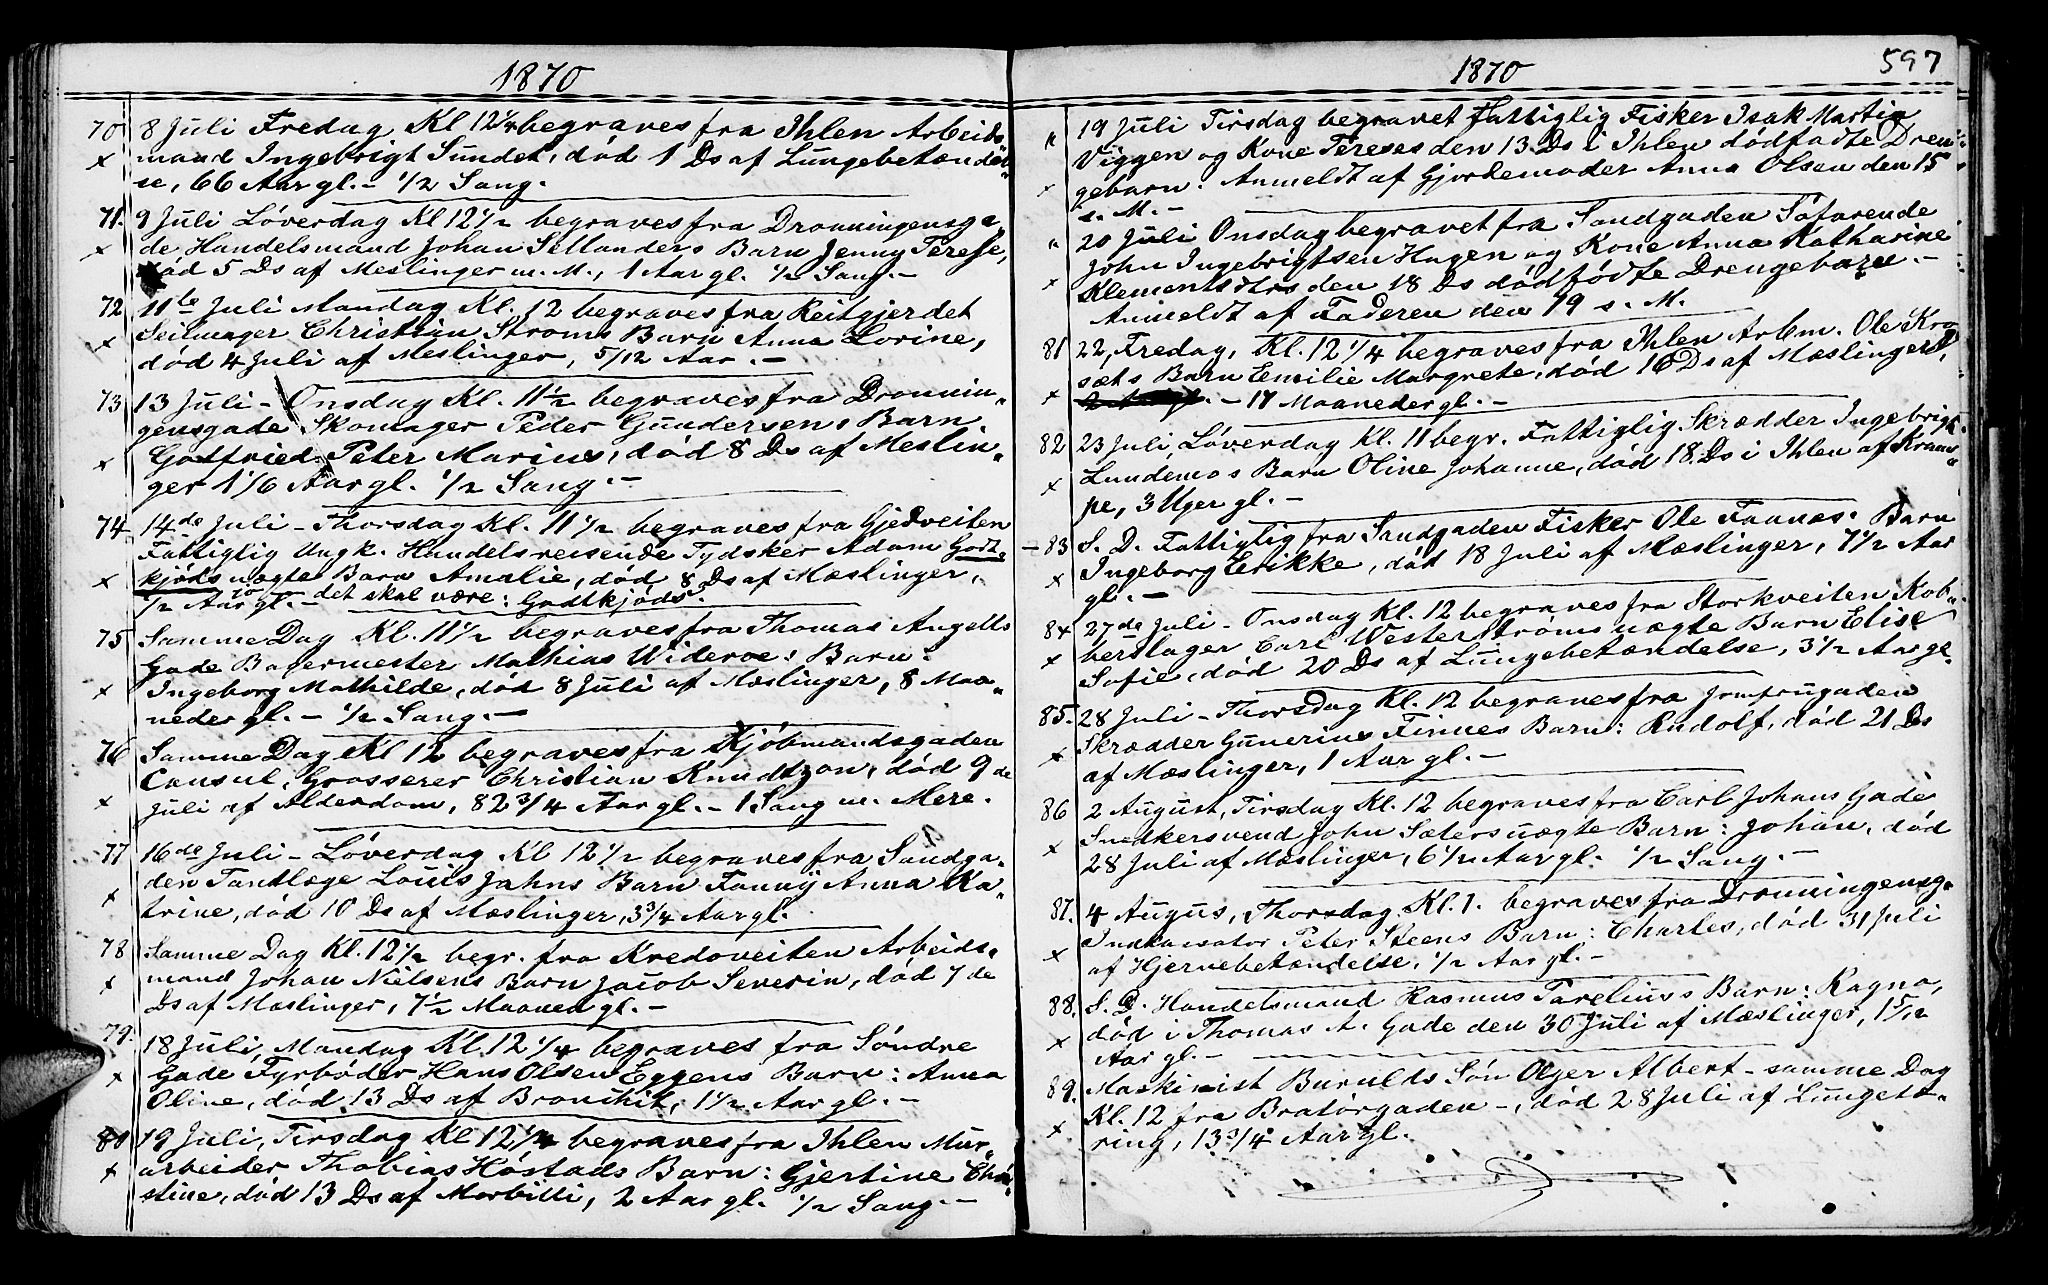 1870
70 8 Juli Fredag Kl 12¼ begraves fra Ihlen Arbeids-
x mand Ingebrigt Sundet, död 1 Ds af Lungebetændel-
se, 66 Aar gl. - ½ Sang.
71. 9 Juli Löverdag Kl 12½ begraves fra Dronningensga-
x de Handelsmand Johan Sellanders Barn Jenny Terese,
död 5 Ds af Meslinger m. M., 1 Aar gl. ½ Sang. -
72 11te Juli Mandag Kl. 12 begraves fra Reitgjerdet
x Seilmager Christian Ströms Barn Anna Lorine,
död 4 Juli af Meslinger, 5/12 Aar. -
73 13 Juli - Onsdag Kl. 11½ begraves fra Dronnin-
gensgade Skomager Peder Gundersens Barn.
x Godtfried Peter Marius, död 8 Ds af Meslin-
ger 1 1/6 Aar gl. ½ Sang. -
74 14de Juli - Thorsdag Kl. 11½ begraves fra Gjedveiten
Fattiglig Ungk. Handelsreisende Tydsker Adam Godt-
x kjöds uægte Barn Amalie, död 8 Ds af Mæslinger,
½ Aar gl. - det skal være: Godtkjöds.
75 Samme Dag Kl. 11½ begraves fra Thomas Angells
Gade Bagermester Mathias Wideroe's Barn:
x Ingeborg Mathilde, död 8 Juli af Mæslinger, 8 Maa-
neder gl. - ½ Sang. -
76 Samme Dag Kl 12 begraves fra Kjöbmandsgaden
Consul, Grosserer Christian Knudtzon, död 9de
x Juli af Alderdom, 82¾ Aar gl. - 1 Sang m. Mere.
77 16de Juli - Löverdag Kl 12½ begraves fra Sandga-
den Tandlæge Louis Jahns Barn Fanny Anna Ka-
x trine, död 10 Ds af Mæslinger, 3¾ Aar gl.
78 Samme Dag Kl. 12½ begr. fra Kredoveiten Arbeids-
x mand Johan Nielsens Barn Jacob Severin, död 7de
Ds af Mæslinger, 7½ Maaned gl. -
79. 18 Juli, Mandag Kl. 12¼ begraves fra Söndre
x Gade Fyrböder Hans Olsen Eggens Barn: Anna
Oline, död 13 Ds af Bronchit, 1½ Aar gl. -
80 19 Juli, Tirsdag Kl 12¼ begraves fra Ihlen Mur-
x arbeider Thobias Höstads Barn: Gjertine Chri-
stine, död 13 Ds af Morbilli, 2 Aar gl. ½ Sang. -
1870 597
" 19 Juli Tirsdag begravet fattiglig Fisker Isak Martin
Viggen og Kone Tereses den 13 Ds i Ihlen dödfödte Dren-
x gebarn. Anmeldt af Gjordemoder Anna Olsen den 15
s. M. -
" 20 Juli Onsdag begravet fra Sandgaden Söfarende
John Ingebrigtsen Hagen og Kone Anna Katharine
x Klementsdtrs den 18 Ds dödfödte Drengebarn. -
Anmeldt af Faderen den 19 s. M.
81 22, Fredag, Kl. 12¼ begraves fra Ihlen Arbm. Ole Krog-
sæts Barn Emilie Margrete, död 16 Ds af Mæslinger,
x - 17 Maaneder gl. -
82 23 Juli, Löverdag Kl. 11 begr. Fattiglig Skrædder Ingebrigt
x Lundemos Barn Oline Johanne, död 18. Ds i Ihlen af Kram-
pe, 3 Uger gl. -
- 83 S. D. Fattiglig fra Sandgaden Fisker Ole Fannæs's Barn
x Ingeborg Erikke, död 18 Juli af Mæslinger, 7½ Aar
gl. -
84 27de Juli - Onsdag Kl. 12 begraves fra Storkveiten Kob-
x berslager Carl Westerströms uægte Barn Elise
Sofie, död 20 Ds af Lungebetændelse, 3½ Aar gl.
85. 28 Juli - Thorsdag Kl. 12 begraves fra Jomfrugaden
x Skrædder Gunerius Finnes Barn: Rudolf, död 21 Ds
af Mæslinger, 1 Aar gl. -
86 2 August, Tirsdag Kl. 12 begraves fra Carl Johans Gade
x Snedkersvend John Sæters uægte Barn: Johan, död
28 Juli af Mæslinger, 6½ Aar gl. ½ Sang. -
87. 4 Augus, Thorsdag Kl. 1. begraves fra Dronningensg.
x Indkassator Peter Steens Barn: Charles, död 31 Juli
af Hjernebetændelse, ½ Aar gl. -
88. S. D. Handelsmand Rasmus Parelius's Barn: Ragna,
x död i Thomas A. Gade den 30 Juli af Mæslinger, 1 5/12
Aar gl. -
89. Maskinist Burulds Sön Olger Albert - samme Dag
x Kl. 12 fra Bratörgaden -, död 28 Juli af Lungetæ-
ring, 13¾ Aar gl.